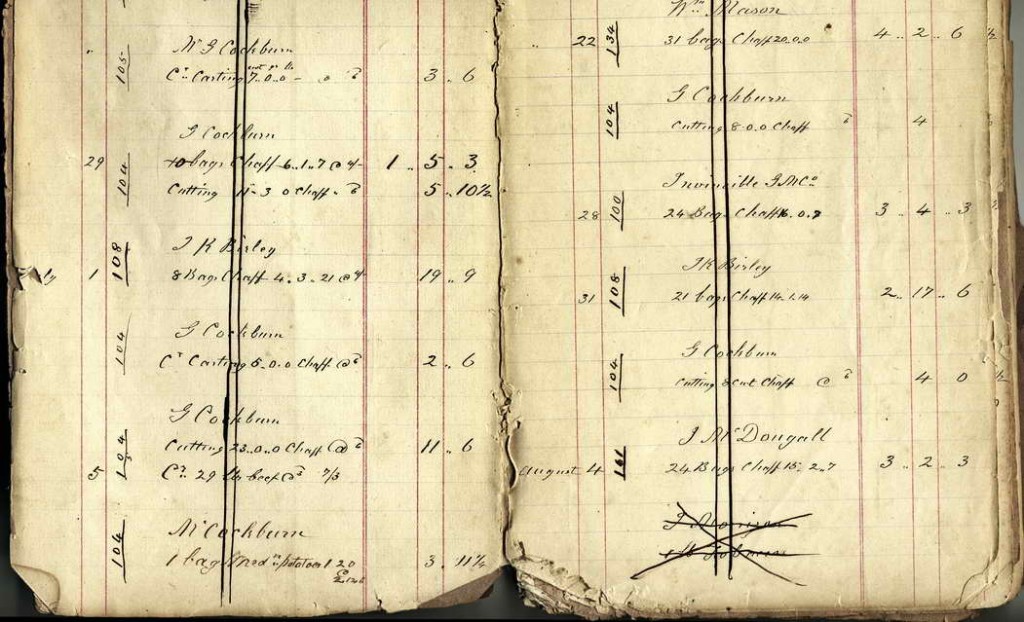 " 105 Mr G Cockburn
Cr Carting 7..0..0 - 3 .. 6
G Cockburn
29 104 10 bags Chaff 6..1..7 @ 4/- 1 .. 5 .. 3
Cutting 11-3 0 Chaff 5 .. 10½
J K Bisley
July 1 108 8 Bags Chaff 4..3..21 @ 4/- 19 .. 9
104 G Cockburn
Cr Carting 5..0..0 Chaff @ 2 .. 6
G Cockburn
104 Cutting 23..0..0 Chaff @ 11 .. 6
5 Cr 29 lbs beef 7/3
104 Mr Cockburn
1 bag potatoes 1.20 3 .. 11½
@
Wm Mason
" 22 134 31 bags Chaff 20.0.0 4 .. 2 .. 6
G Cockburn
104 Cutting 8.0.0 Chaff 4
Invincible G M Co
28 100 24 Bags Chaff 16.0.7 3 .. 4 .. 3
J K Bisley
31 108 21 bags Chaff 14.1.14 2 .. 17 .. 6
G Cockburn
104 Cutting 8 cwt Chaff @ 4 0
J McDougall
August 4 161 24 Bags Chaff 15.2..7 3 .. 2 .. 3